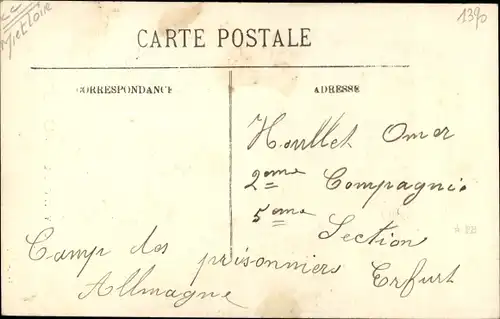 CC
M et Loire
1390
CARTE POSTALE
CORRESPONDANCE
ADRESSE
Houllet Omer
2eme Compagnie
5eme Section
Camp des prisonniers Erfurt
Allmagne